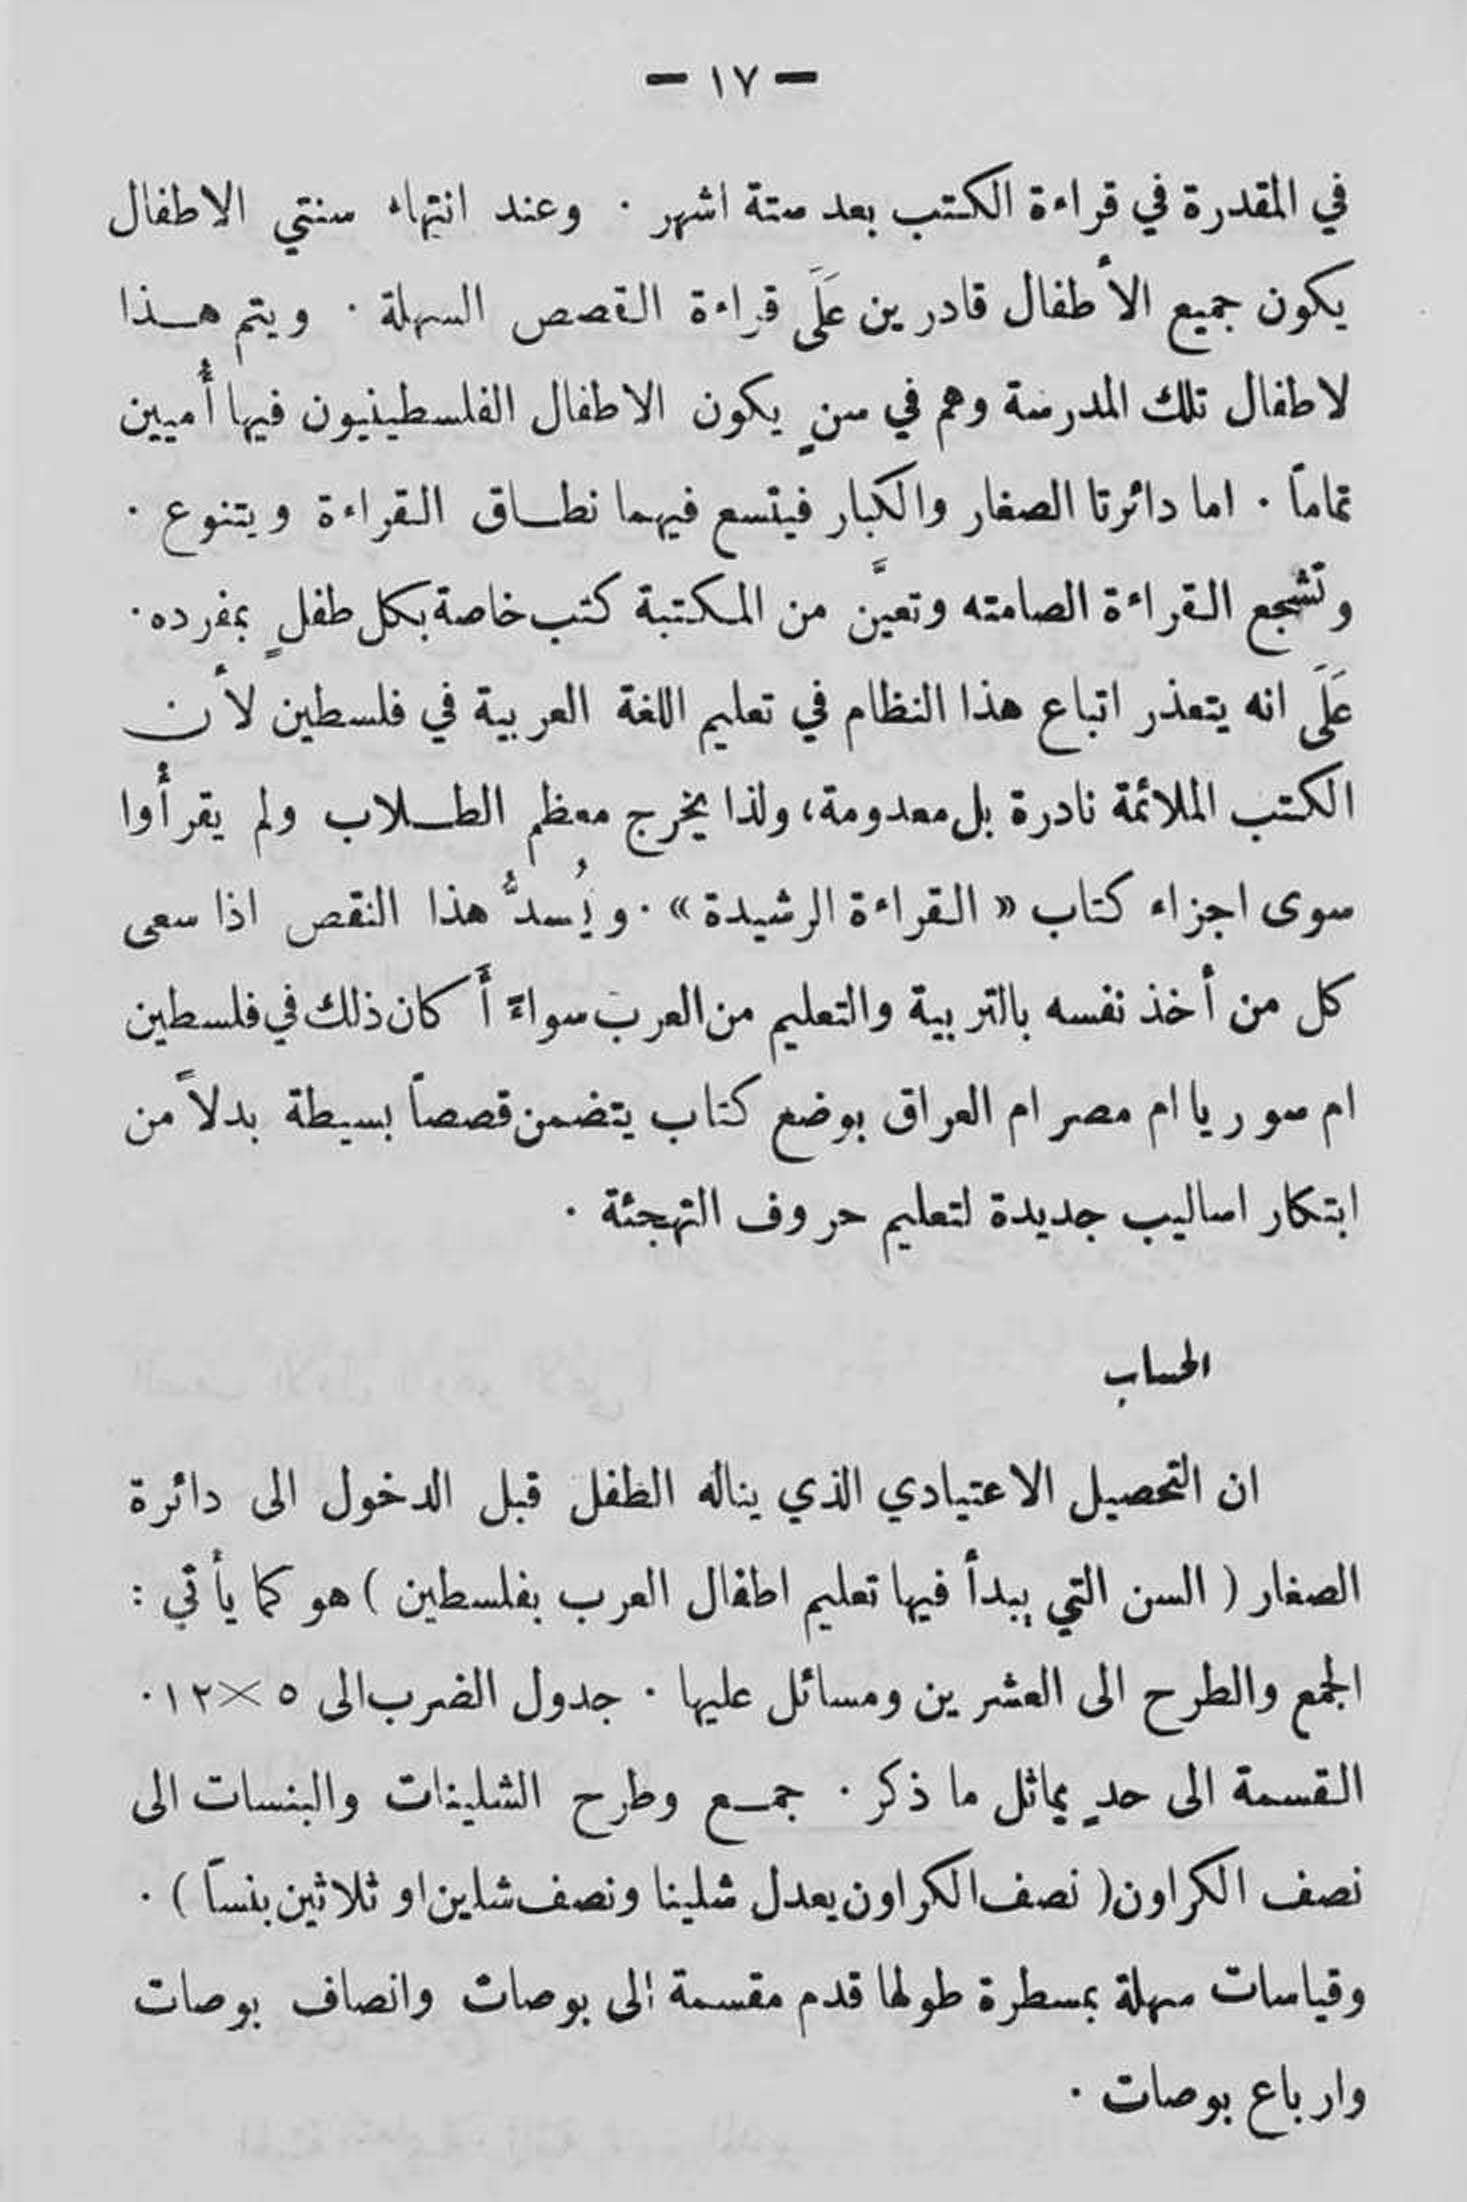 — ١٧ —
في المقدرة في قراءة الكتب بعد ستة اشهر . وعند انتهاء سنتي الاطفال
يكون جميع الأطفال قادرين عَلَى قراءة القصص السهلة . ويتم هـذا
لاطفال تلك المدرسة وهم في سنٍ يكون الاطفال الفلسطينيون فيها أُميين
تماماً . اما دائرتا الصغار والكبار فيتسع فيهما نطـاق القراءة ويتنوع .
وتشجع القراءة الصامته وتعيَّن من المكتبة كتب خاصة بكل طفلٍ بمفرده .
عَلَى انه يتعذر اتباع هذا النظام في تعليم اللغة العربية في فلسطين لأن
الكتب الملائمة نادرة بل معدومة، ولذا يخرج معظم الطـلاب ولم يقرأُوا
سوى اجزاء كتاب « القراءة الرشيدة » . ويُسدُّ هذا النقص اذا سعى
كل من أخذ نفسه بالتربية والتعليم من العرب سواءً أَ كان ذلك في فلسطين
ام سوريا ام مصر ام العراق بوضع كتاب يتضمن قصصاً بسيطة بدلاً من
ابتكار اساليب جديدة لتعليم حروف التهجئة .
الحساب
ان التحصيل الاعتيادي الذي يناله الطفل قبل الدخول الى دائرة
الصغار ( السن التي يبدأ فيها تعليم اطفال العرب بفلسطين ) هو كما يأتي :
الجمع والطرح الى العشرين ومسائل عليها . جدول الضرب الى ٥ × ١٢ .
القسمة الى حدٍ يماثل ما ذكر . جمـع وطرح الشلينات والبنسات الى
نصف الكراون ( نصف الكراون يعدل شلينا ونصف شلين او ثلاثين بنساً ) .
وقياسات سهلة بمسطرة طولها قدم مقسمة الى بوصات وانصاف بوصات
وارباع بوصات .